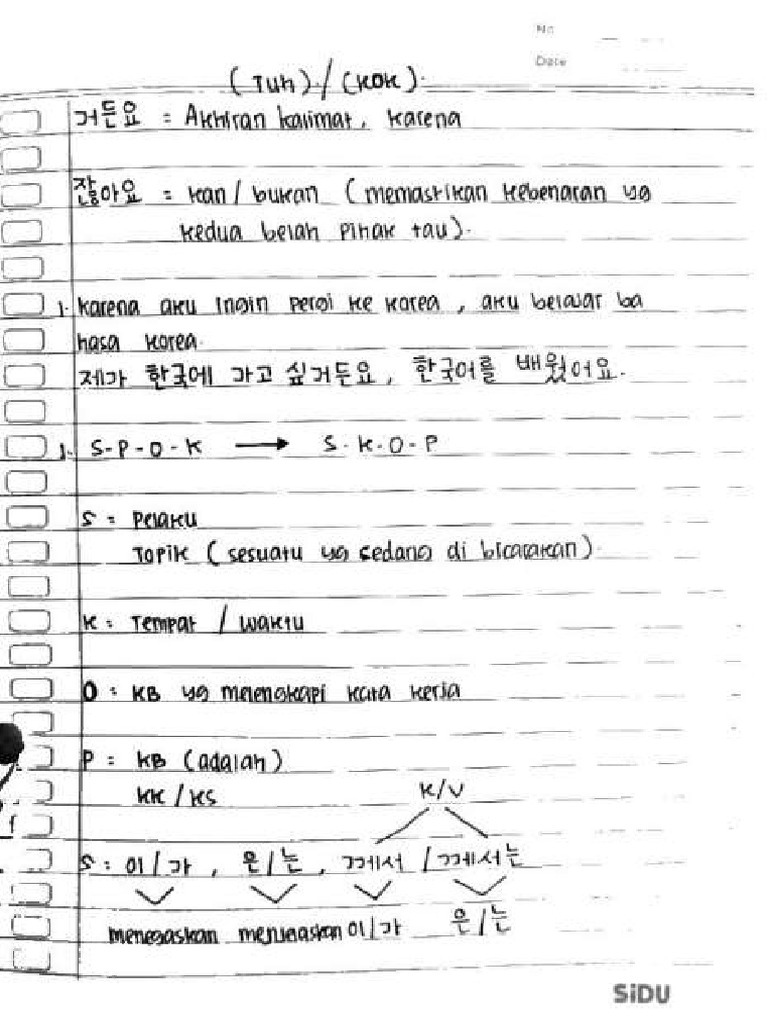 No
Date
(Tuh)./(KOK).
거든요 = Akhiran kalimat, karena
잖아요 = kan / bukan (memastikan kebenaran yg
kedua belah pihak tau).
1. karena aku ingin pergi ke korea, aku belajar ba
hasa korea.
제가 한국에 가고 싶거든요, 한국어를 배웠어요.
1. S-P-O-K → S-K-O-P
S = Pelaku
Topik (sesuatu yg sedang di bicarakan).
K = Tempat / waktu
O = KB yg melengkapi kata kerja
P = KB (adalah)
KK / KS
K/V
S = 이/가, 은/는, 께서 / 께서는
menegaskan menjelaskan 이/가 은/는
SiDU